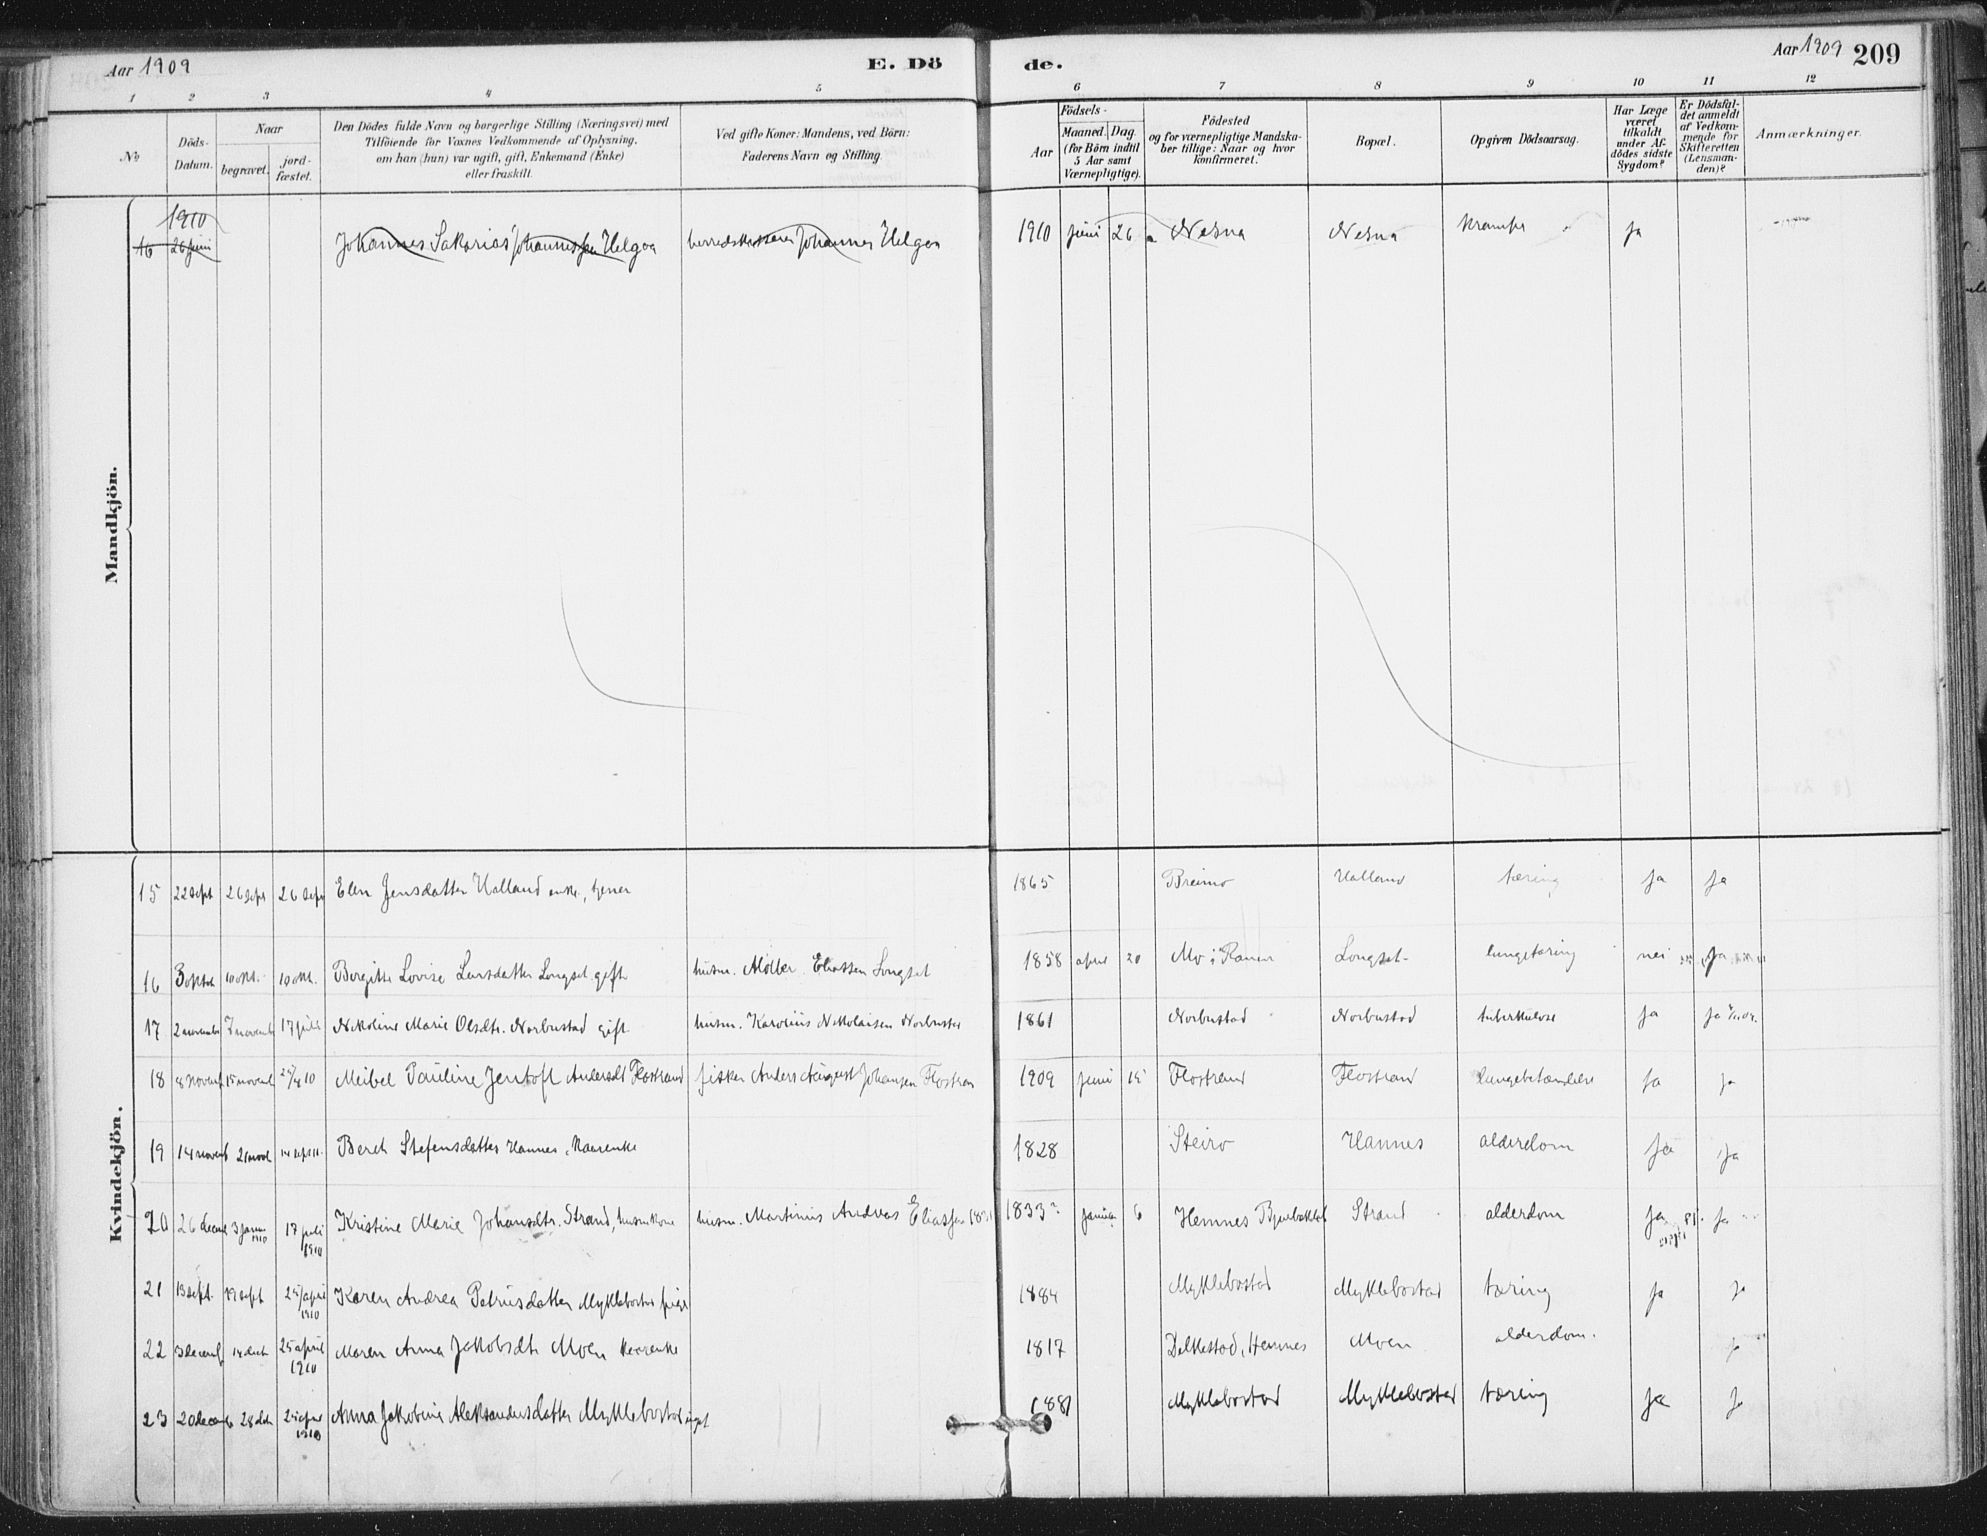 Aar 1909
E. Dö
de.
Aar 1909 209
1 2 3 4 5 6 7 8 9 10 11 12
№
Döds-
Datum.
Naar
begravet.
jord-
fæstet.
Den Dödes fulde Navn og borgerlige Stilling (Næringsvei) med
Tilföiende for Voxnes Vedkommende af Oplysning,
om han (hun) var ugift, gift, Enkemand (Enke)
eller fraskilt.
Ved gifte Koner: Mandens, ved Börn:
Faderens Navn og Stilling.
Födsels-
Aar
Maaned. Dag.
(for Börn indtil
5 Aar samt
Værnepligtige).
Födested
og for værnepligtige Mandska-
ber tillige: Naar og hvor
konfirmeret.
Bopæl.
Opgiven Dödsaarsag.
Har Læge
været
tilkaldt
under Af-
dödes sidste
Sygdom?
Er Dödsfal-
det anmeldt
af Vedkom-
mende for
Skifteretten
(Lensman-
den)?
Anmærkninger.
Mandkjön.
1910
16 26 juni Johannes Sakarias Johannessen Helgaa herredskasserer Johannes Helgaa 1910 juni 26 Nesna Nesna Krampe ja
Kvindekjön.
15 22 sept 26 sept 26 sept Elen Jensdatter Halland enke, tjener 1865 Breimo Halland tæring ja ja
16 3 oktob 10 okt. 10 okt. Bergitte Lovise Larsdatter Longset gift husm. Möller Eliassen Longset 1858 april 20 Mo i Ranen Longset lungetæring nei ja
17 2 novembr 7 novemb 17 juli Nikoline Marie Olsdtr. Norbustad gift husm. Karolius Nikolaisen Norbustad 1861 Norbustad Norbustad tuberkulose ja ja
18 8 novemb 15 novemb 24/4 10 Meibel Pauline Jentoft Andersdt Flostrand fisker Anders August Johansen Flostran 1909 juni 15 Flostrand Flostrand lungebetændelse ja ja
19 14 novemb 21 novb 14 sept 11. Berch Stefensdatter Hannes, Kaarenke 1828 Steiro Hannes alderdom ja ja
20 26 decemb 3 janu 1910 17 juli 1910 Kristine Marie Johansdtr. Strand, husmkone husm. Martinus Andreas Eliassen 1833 januar 6 Hemnes Strand alderdom ja ja
21 13 sept. 19 sept 25/april 1910 Karen Andrea Petrusdatter Myklebostad pige 1884 Myklebostad Myklebostad tæring ja ja
22 3 decemb 14 decb 25 april 1910 Maren Anna Jakobsdt Moen kaarenke 1817 Delkestad, Hemnes Moen alderdom. ja
23 20 decemb 28 deb 25 april 1910 Anna Jakobine Aleksandersdatter Myklebostad ugift 1881 Myklebostad Myklebostad tæring ja ja